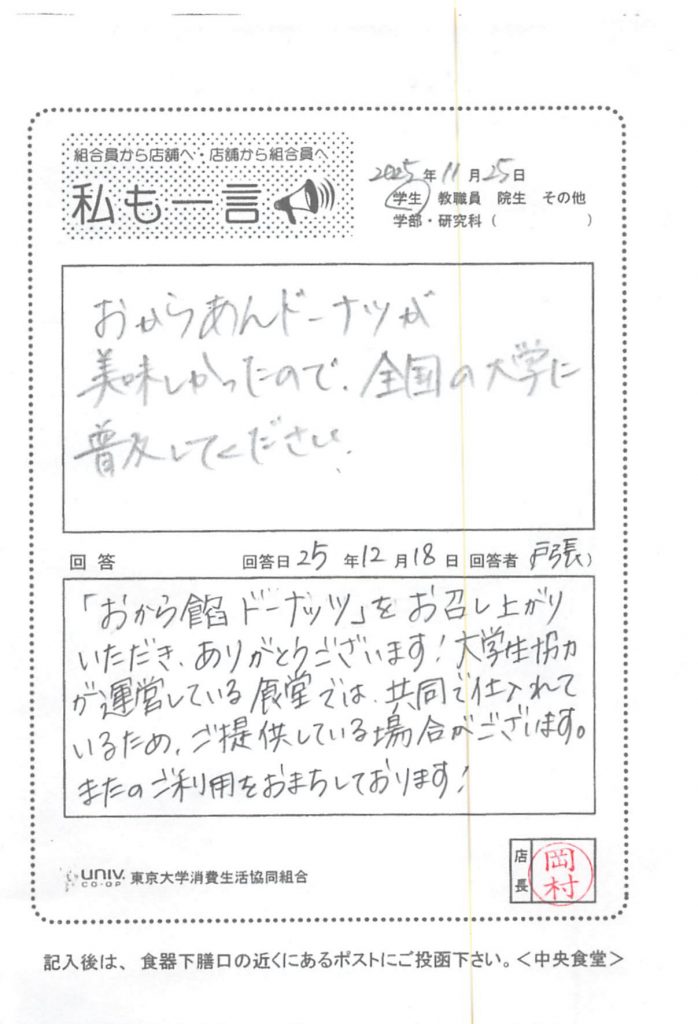 組合員から店舗へ・店舗から組合員へ
私も一言
2025年11月25日
学生 教職員 院生 その他
学部・研究科( )
おからあんドーナツが
美味しかったので、全国の大学に
普及してください。
回答 回答日25年12月18日 回答者 戸張)
「おから餡ドーナッツ」をお召し上がり
いただき、ありがとうございます!大学生協力
が運営している食堂では、共同で仕入れて
いるため、ご提供している場合がございます。
またのご利用をおまちしております!
UNIV. CO-OP 東京大学消費生活協同組合
店長 岡村
記入後は、食器下膳口の近くにあるポストにご投函下さい。<中央食堂>